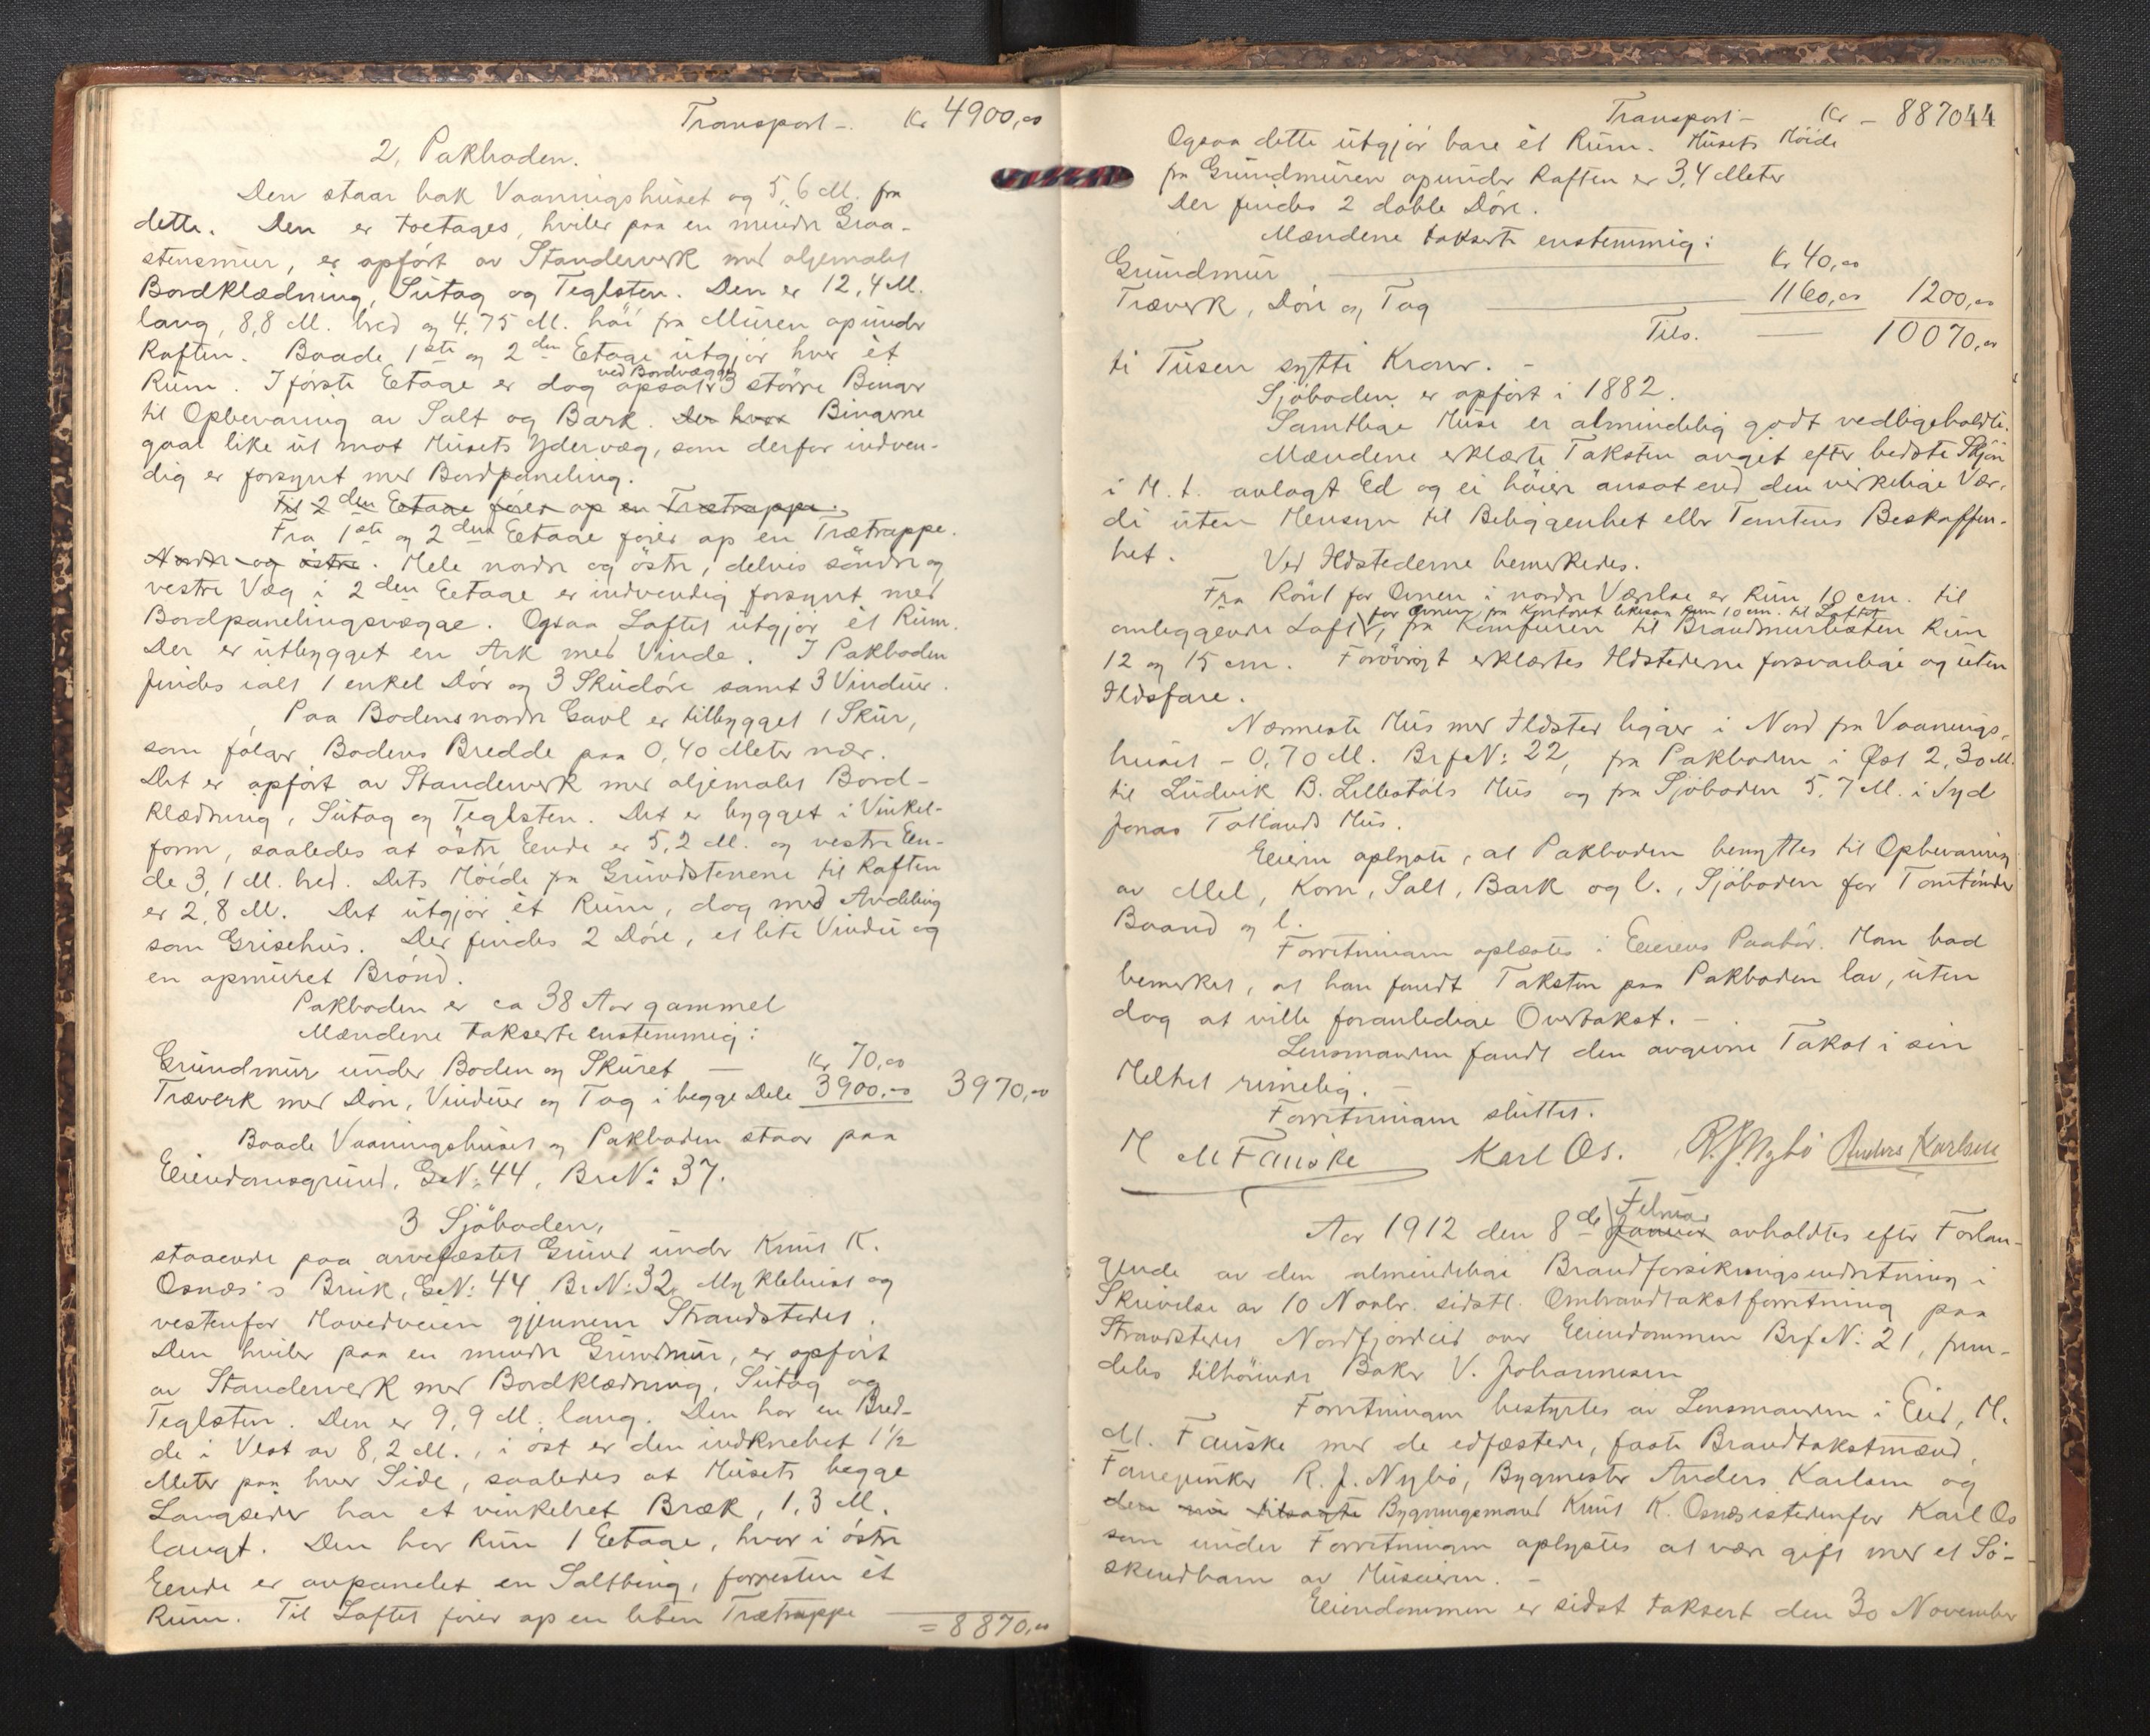 Transport -. Kr 4900,00
2, Pakboden.
Den staar bak Vaaningshuset og 5,6 M. fra
dette. Den er toetages, hviler paa en mindre Graa-
stensmur, er opført av Standerverk med oljemalet
Bordklædning, Sutag og Teglsten. Den er 12,4 M.
lang, 8,8 M. bred og 4,75 M. høi fra Muren opunder
Raften. Baade 1ste og 2den Etage utgjør hver et
Rum. I første Etage er dog ved Bordvægge opsatt 3 større Binger
til Opbevaring av Salt og Bark. Der hvor Bingerne
gaar like ut mot Husets Ydervæg, som derfor indven-
dig er forsynt med Bordpaneling.
Til 2den Etage fører op en Trætrappe.
Fra 1ste og 2den Etage fører op en Trætrappe.
Nordre og østre. Hele nordre og østre, delvis søndre og
vestre Væg i 2den Etage er indvendig forsynt med
Bordpanelingsvægge. Ogsaa Loftet utgjør et Rum.
Der er utbygget en Ark med Vinde. I Pakboden
findes ialt 1 enkel Dør og 3 Skudøre samt 3 Vinduer.
Paa Bodens nordre Gavl er tilbygget 1 Skur,
som følger Bodens Bredde paa 0,40 Meter nær.
Det er opført av Standerverk med oljemalet Bord-
klædning, Sutag og Teglsten. Det er bygget i Vinkel-
form, saaledes at østre Ende er 5,2 M. og vestre En-
de 3,1 M. bred. Dets Høide fra Grundstenene til Raften
er 2,8 M. Det utgjør et Rum, dog med Avdeling
som Grisehus. Der findes 2 Døre, et lite Vindu og
en opmuret Brønd.
Pakboden er ca 38 Aar gammel
Mændene takserte enstemmig:
Grundmur under Boden og Skuret — Kr 70,00
Træverk med Døre, Vinduer og Tag i begge Dele 3900,00 3970,00
Baade Vaaningshuset og Pakboden staar paa
Eiendomsgrund, G.N: 44, Br.N: 37.
3 Sjøboden,
staaende paa arvefæstet Grund under Knut K.
Osnæs's Bruk, G.N: 44 Br.N: 32 Myklebust og
vestenfor Hovedveien gjennem Strandstedet.
Den hviler paa en mindre Grundmur, er opført
av Standerverk med Bordklædning, Sutag og
Teglsten. Den er 9,9 M. lang. Den har en Bred-
de i Vest av 8,2 M., i øst er den indknebet 1½
Meter paa hver Side, saaledes at Husets begge
Langsider har et vinkelret Bræk, 1,3 M.
langt. Den har kun 1 Etage, hvor i østre
Ende er avpanelet en Saltbing, forresten et
Rum. Til Loftet fører op en liten Trætrappe
= 8870,00
Transport - Kr - 8870 44
Ogsaa dette utgjør bare et Rum. Husets Høide
fra Grundmuren opunder Raften er 3,4 Meter
Der findes 2 doble Døre.
Mændene takserte enstemmig:
Grundmur — Kr 40,00
Træverk, Døre og Tag — 1160,00 1200,00
Tils. — 10070,00
ti Tusen sytti Kroner. -
Sjøboden er opført i 1882.
Samtlige Huse er almindelig godt vedligeholdte.
Mændene erklærte Taksten avgit efter bedste Skjøn
i H. t. avlagt Ed og ei høiere ansat end den virkelige Vær-
di uten Hensyn til Beliggenhet eller Tomtens Beskaffen-
het. Ved Ildstederne bemerkedes.
Fra Røret for Ovnen i nordre Værelse er kun 10 cm. til
omliggende Loft, for Ovnen fra Kontoret likesaa kun 10 cm. til Loftet,
fra Komfuren til Brandmurlisten kun
12 og 15 cm. Forøvrigt erklærtes Ildstederne forsvarlige og uten
Ildsfare.
Nærmeste Hus med Ildsted ligger i Nord fra Vaanings-
huset - 0,70 M. Brf N: 22, fra Pakboden i Øst 2,30 M.
til Ludvik B. Lillestøls Hus og fra Sjøboden 5,7 M. i Syd
Jonas Totlands Hus.
Eieren oplyste, at Pakboden benyttes til Opbevaring
av Mel, Korn, Salt, Bark og l., Sjøboden for Tomtønder
Baand og l.
Forretningen oplæstes i Eierens Paahør. Han bad
bemerket, at han fandt Taksten paa Pakboden lav, uten
dog at ville foranledige Overtakst. -
Lensmanden fandt den avgivne Takst i sin
Helhet rimelig. -
Forretningen sluttet.
H M Fauske Karl Os. R. J. Nybø Anders Karlsen
Aar 1912 den 8de Januar Februar avholdtes efter Forlan-
gende av den almindelige Brandforsikringsindretning i
Skrivelse av 10 Novbr. sidstl. Ombrandtakstforretning paa
Strandstedet Nordfjordeid over Eiendommen Brf N: 21, frem-
deles tilhørende Baker V. Johannesen
Forretningen bestyrtes av Lensmanden i Eid, H.
M. Fauske med de edfæstede, faste Brandtakstmænd,
Fanejunker R. J. Nybø, Bygmester Anders Karlsen og
den nu tilsagte Bygningsmand Knut K. Osnæs istedenfor Karl Os
som under Forretningen oplystes at være gift med et Sø-
skendbarn av Huseieren. -
Eiendommen er sidst taksert den 30 November